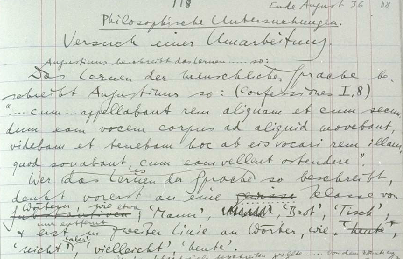 118 Ende August 36
Philosophische Untersuchungen.
Versuch einer Umarbeitung.
Augustinus beschreibt das lernen ... so:
Das Lernen der menschlichen Sprache be-
schreibt Augustinus so: (Confessiones I, 8)
"... cum ... appellabant rem aliquam et cum secun
dum eam vocem corpus ad aliquid movebant,
videbam et tenebam hoc ab eis vocari rem illam,
quod sonabant, cum eam vellent ostendere"
Wer das Lernen der Sprache so beschreibt,
denkt vorerst an eine gewisse Klasse von
Wörtern, wie etwa
"Mann", "Brot", "Tisch",
& erst in zweiter Linie an Wörter, wie "heute",
"nicht", "aber", "vielleicht", "heute".